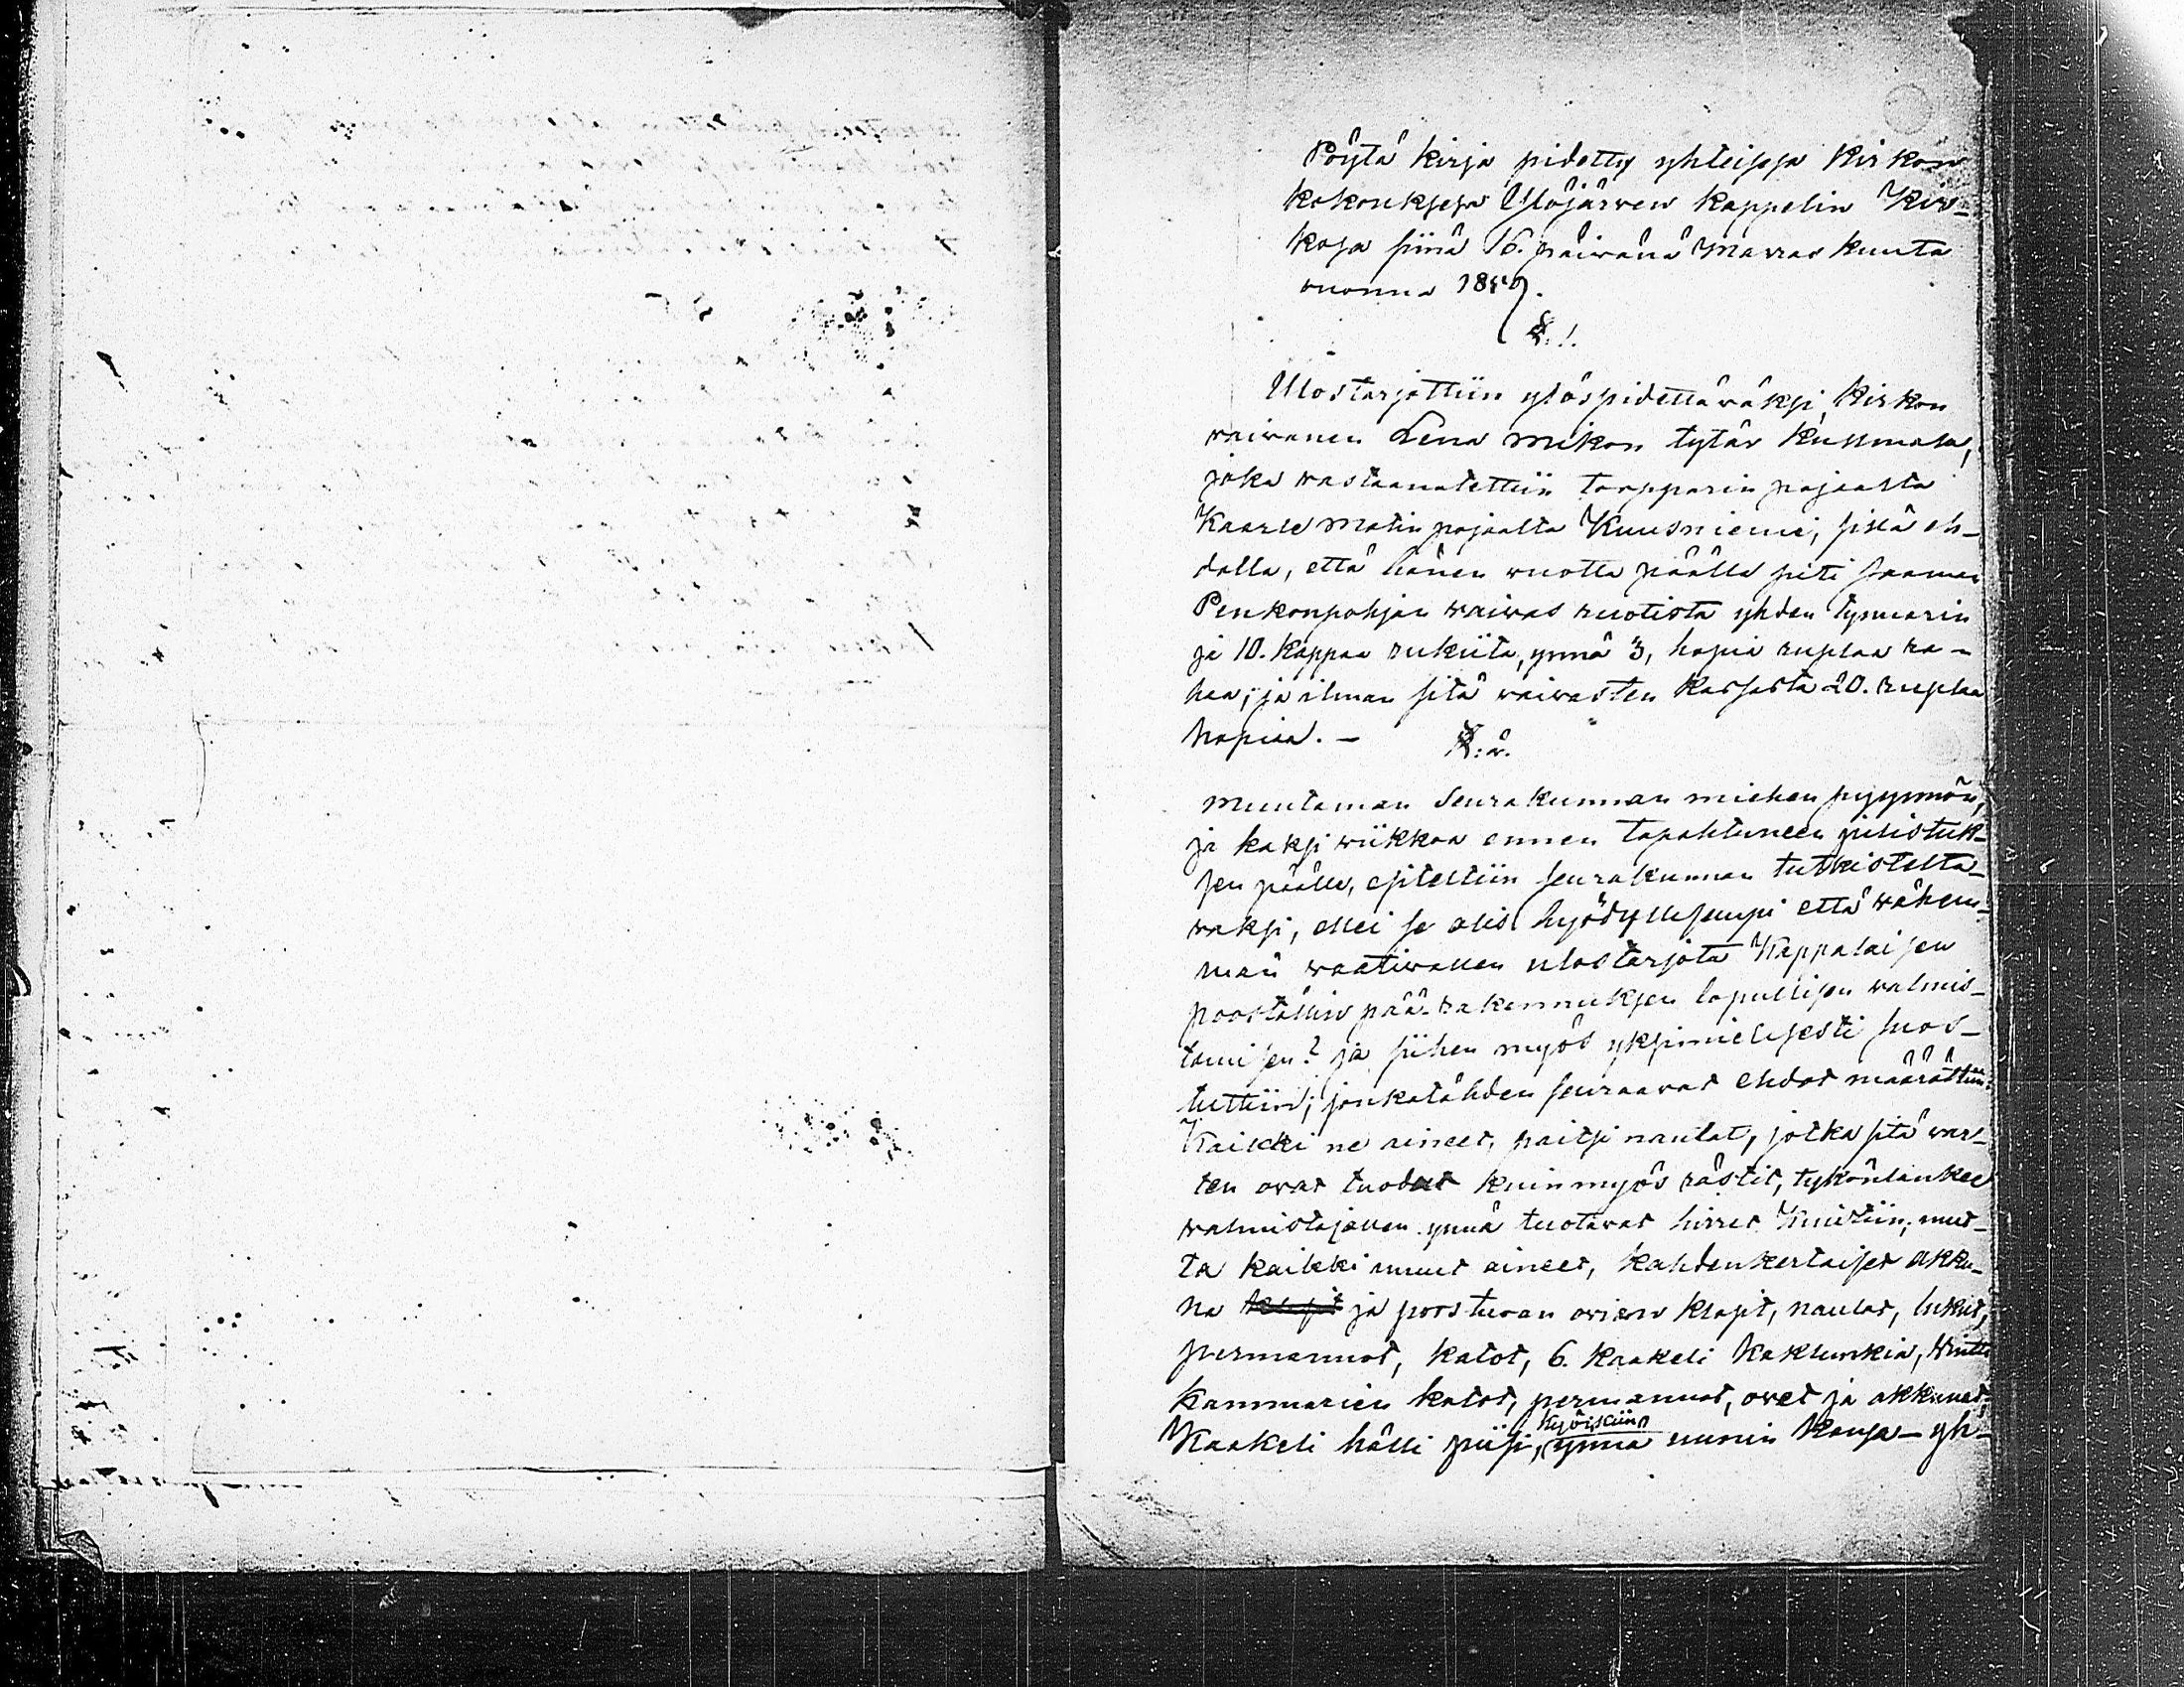 Pöytä kirja pidetty yhteisssä Kirkon
kokouksessa Ylöjärwen kappelin Kir-
kosa siinä 16. päiwänä Marras kuuta
wuonna 1859.
§. 1.
Ulostarjottiin ylöspidettäwäksi, Kirkon
waiwanen Lena Mikon tytär
joka wastaanotettiin torpparin pojasta
Kaarle Matin pojalta Kuusniemi, sillä eh-
dolla, että hänen wuotta päälle piti saaman
Penkonpohjan waiwas ruotista yhden tynnarin
ja 10. Kappaa rukiita, ynnä 3, hopia ruplaa ra-
haa; ja ilman sitä waiwasten Kassasta 20. ruplaa
hopiaa. -
§: 2.
Muutaman Seurakunnan miehen pyynnön,
ja kaksi wiikkoa ennen tapahtuneen
sen päälle, esiteltiin seurakunnan tutkistelta-
waksi, ellei se olisi hyödyllisempi että wähem-
män waatiwallen ulostarjota Kappalaisen
pooställin pää-rakennuksen lopullisen walmis-
tamisen? ja siihen myös yksimielisesti suos-
tuttiin; jonkatähden seuraawat ehdot määrättiin:
Kaikki ne aineet, paitsi naulat, jotka sitä war-
ten owat tuodut kuin myös rästit, tykönlankee
walmistajallen ynnä tuotawat hirret Knuutiin; mut-
ta kaikki muut aineet, kahdenkertaiset akku-
na ja porstuwan owien klapit, naulat, lukut,
permannot, katot, 6. kaakeli kakluunkia, Wintti
kammarien katot, permannot, owet ja akkunat,
Kaakeli hälli piisi, kyöikiin ynnä muurin kansa - yh-